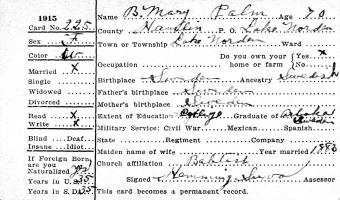 1915
Card No. 225
Sex F
Color W
Married X
Single
Widowed
Divorced
Read X
Write X
Blind Deaf
Insane Idiot
If Foreign Born are you Naturalized?
Years in U.S. 35
Years in S.D. 25
Name B. Mary Palm Age 70
County Hamlin P. O. Lake Norden
Town or Township Lake Norden Ward
Occupation Do you own your home or farm { Yes X No
Birthplace Sweden Ancestry Swedish
Father's birthplace Sweden
Mother's birthplace Sweden
Extent of Education College Graduate of Sweden
Military Service: Civil War Mexican Spanish
State Regiment Company
Maiden name of wife Year married 1880
Church affiliation Baptist
Signed Assessor
This card becomes a permanent record.